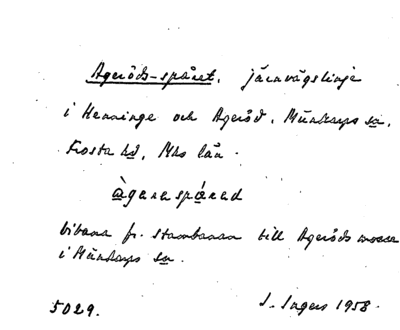 Ageröds-spåret, järnvägslinje
i Henninge och Ageröd, Munkarps sn,
Frosta hd, Mhs län.
àgaraspårəd
bibana fr. stambanan till Ageröds mosse
i Munkarps sn.
5029. I. Ingers 1958.